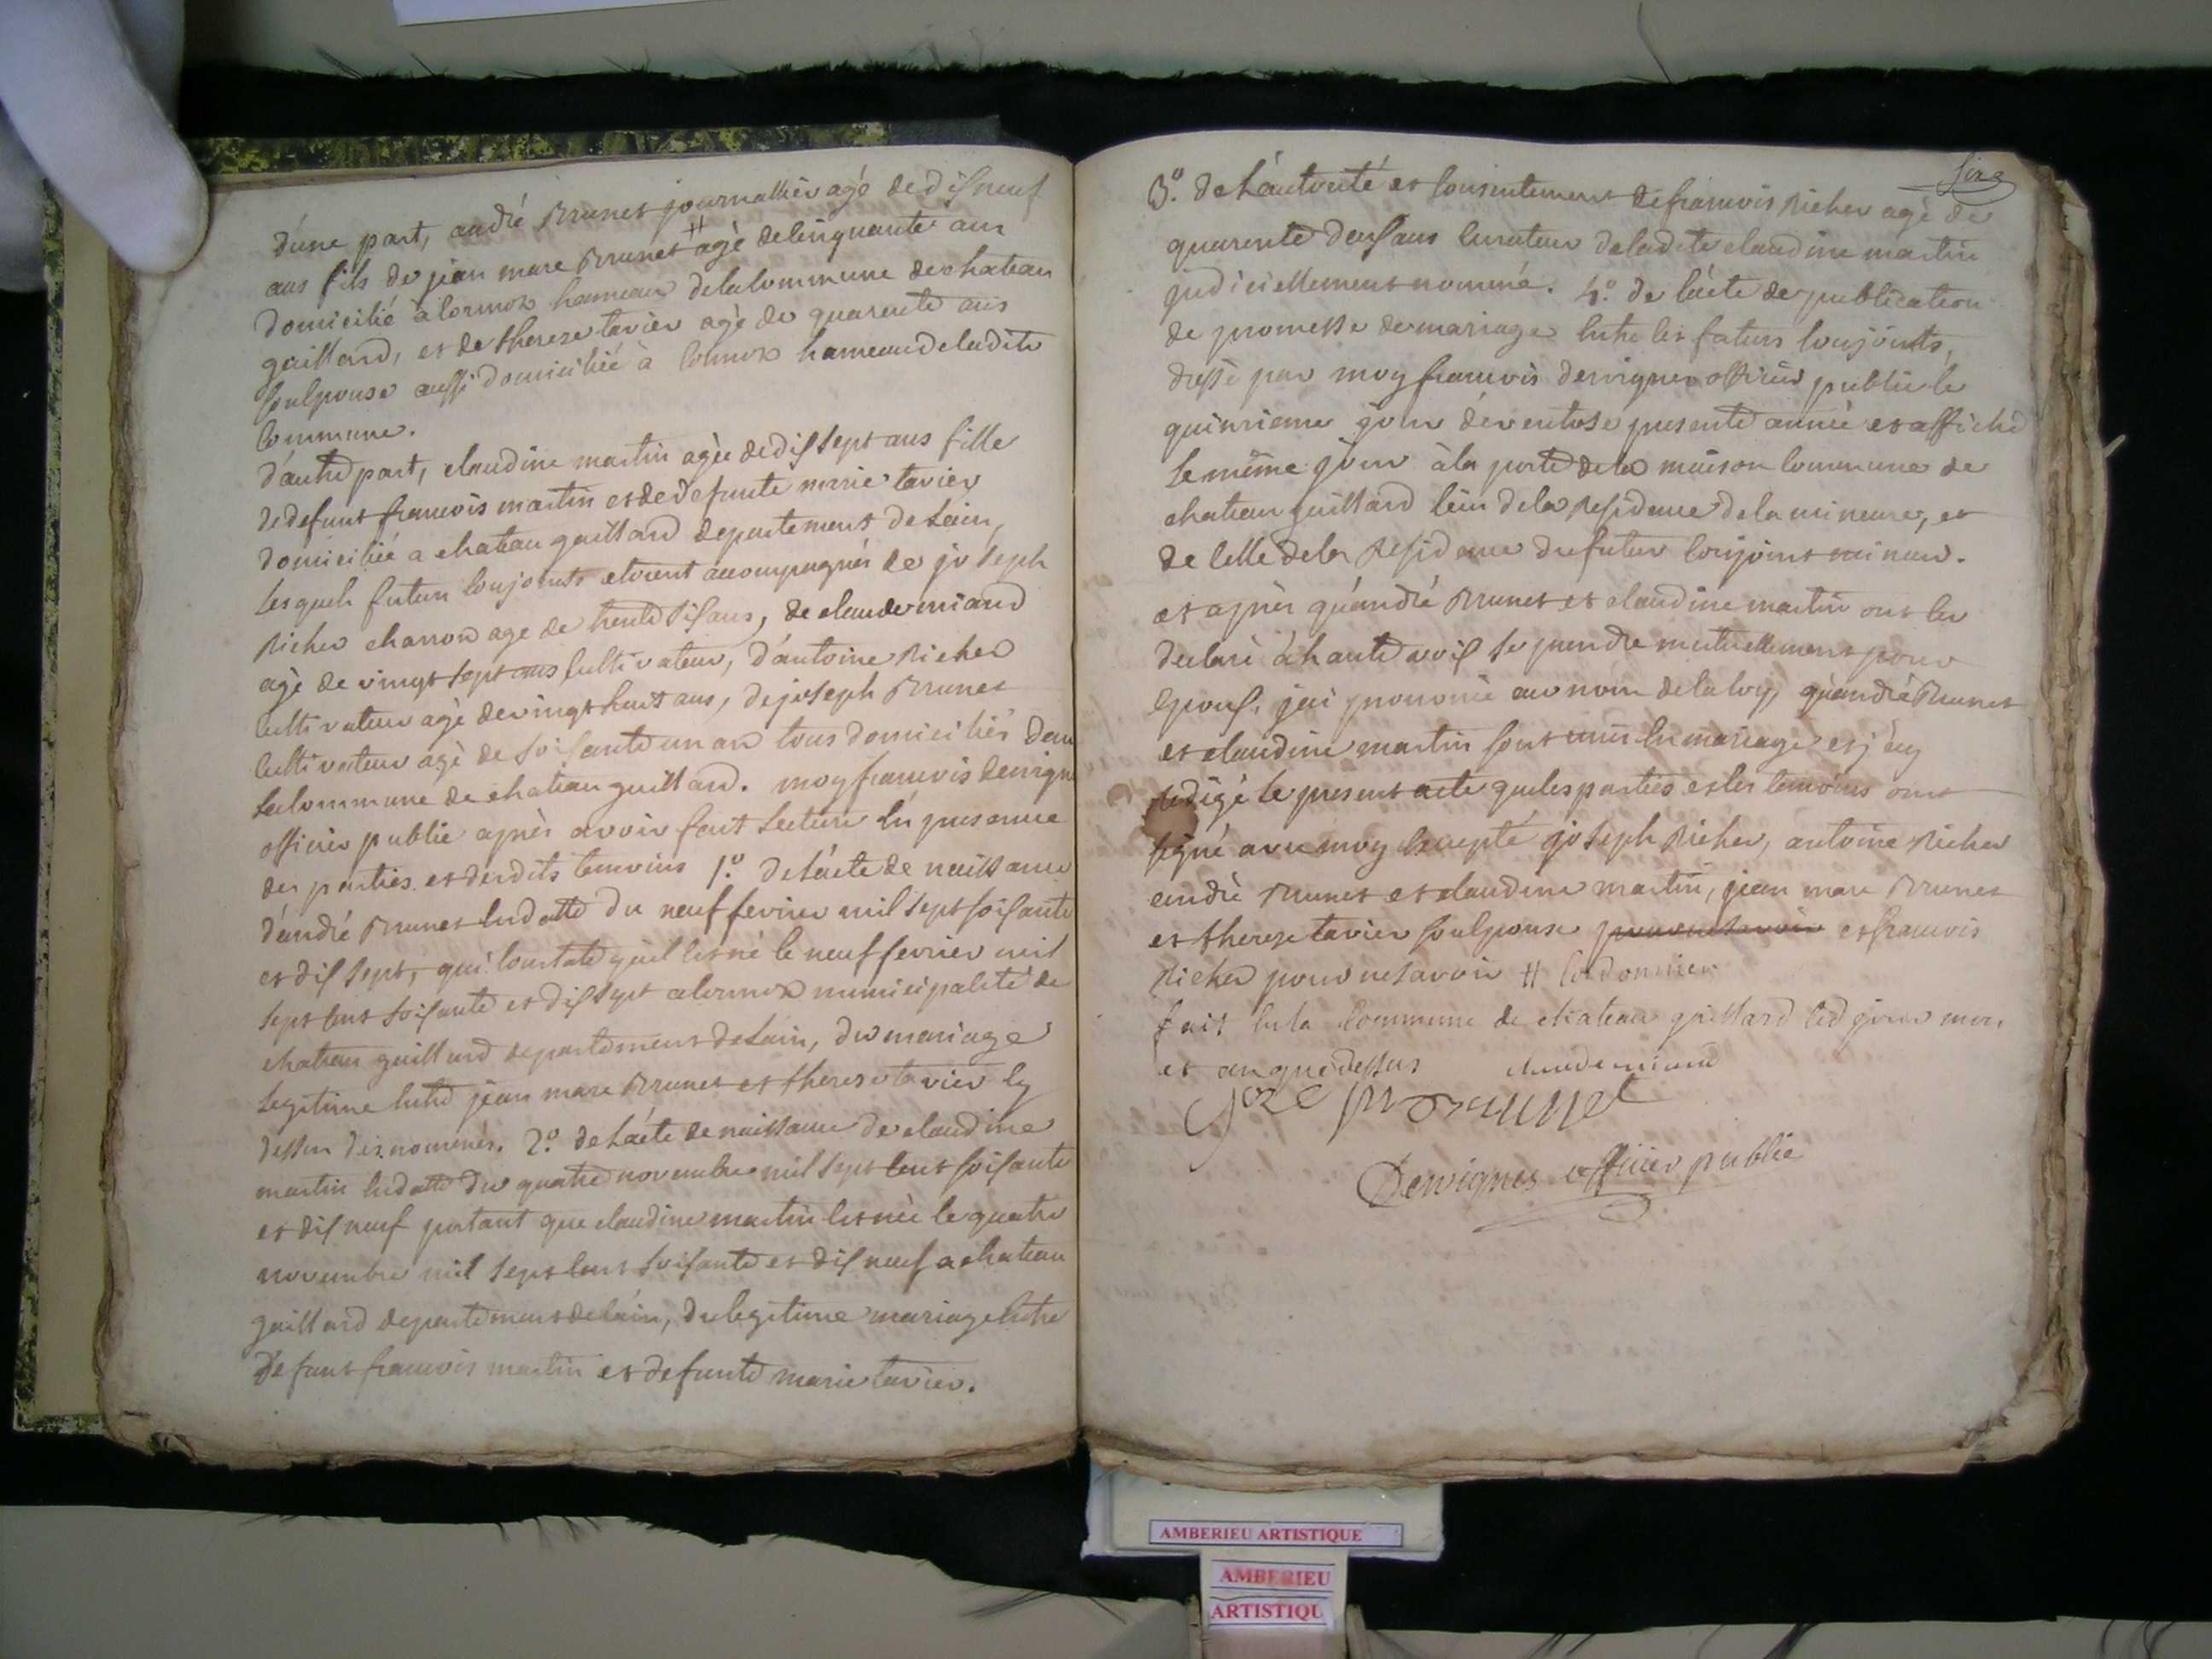 d'une part, andré Brunet journallier agé de disneuf
ans fils de jean marc Brunet # agé de cinquante ans
domicilié à cormoz hameau de la commune de chateau
gaillard, et de therese tavier agé de quarente ans
son epouse aussi domiciliée à cormoz hameau de ladite
commune.
d'autre part, claudine martin agée de dis sept ans fille
de defunt francois martin et de defunte marie tavier,
domiciliée a chateau gaillard departement de l'ain,
lesquels futurs conjoints etoient accompagnés de joseph
Richer charron agé de trente sis ans, de claude miand
agé de vingt sept ans cultivateur, d'antoine Richer
cultivateur agé de vingt huit ans, de joseph Brunet
cultivateur agé de soisante un an tous domiciliés dans
la commune de chateau gaillard. moy francois dervign
officier public après avoir fait lecture en presence
des parties et desdits temoins 1.° de l'acte de naissance
d'andré Brunet en datte du neuf fevrier mil sept soisante
et dis sept, qui constate qu'il est né le neuf fevrier mil
sept cent soisante et dis sept a cormoz municipalité de
chateau gaillard departement de l'ain, du mariage
legitime entre jean marc Brunet et therese tavier cy
dessus denommés. 2.° de l'acte de naissance de claudine
martin en datte du quatre novembre mil sept cent soisante
et dis neuf portant que claudine martin est née le quatre
novembre mil sept cent soisante et dis neuf a chateau
gaillard departement de l'ain, du legitime mariage entre
defunt francois martin et defunte marie tavier.
3.° de l'autorité et consentement de francois Richer agé de
quarente deus ans curateur de ladite claudine martin
judiciellement nommé. 4.° de l'acte de publication
de promesse de mariage entre les futurs conjoints,
dressé par moy francois dervignes officier public le
quinzieme jour de ventose presente année et affiché
le même jour à la porte de la maison commune de
chateau gaillard lieu de la residence de la mineure, et
de celle de la residence du futur conjoint mineur.
et après qu'andré Brunet et claudine martin ont eu
declaré à haute voix se prendre mutuellement pour
epous, jai prononcé au nom de la loy, qu'andré Brunet
et claudine martin sont unis en mariage et j'ay
redigé le present acte que les parties et les temoins ont
signé avec moy excepté joseph Richer, antoine Richer
andré Brunet et claudine martin, jean marc Brunet
et therese tavier son epouse pour ne savoir et francois
Richer pour ne savoir # cordonnier
fait en la commune de chateau gaillard led jour mois
et an que dessus claude miand
Joze Brunet
Dervignes officier public
AMBERIEU ARTISTIQUE
AMBERIEU
ARTISTIQU